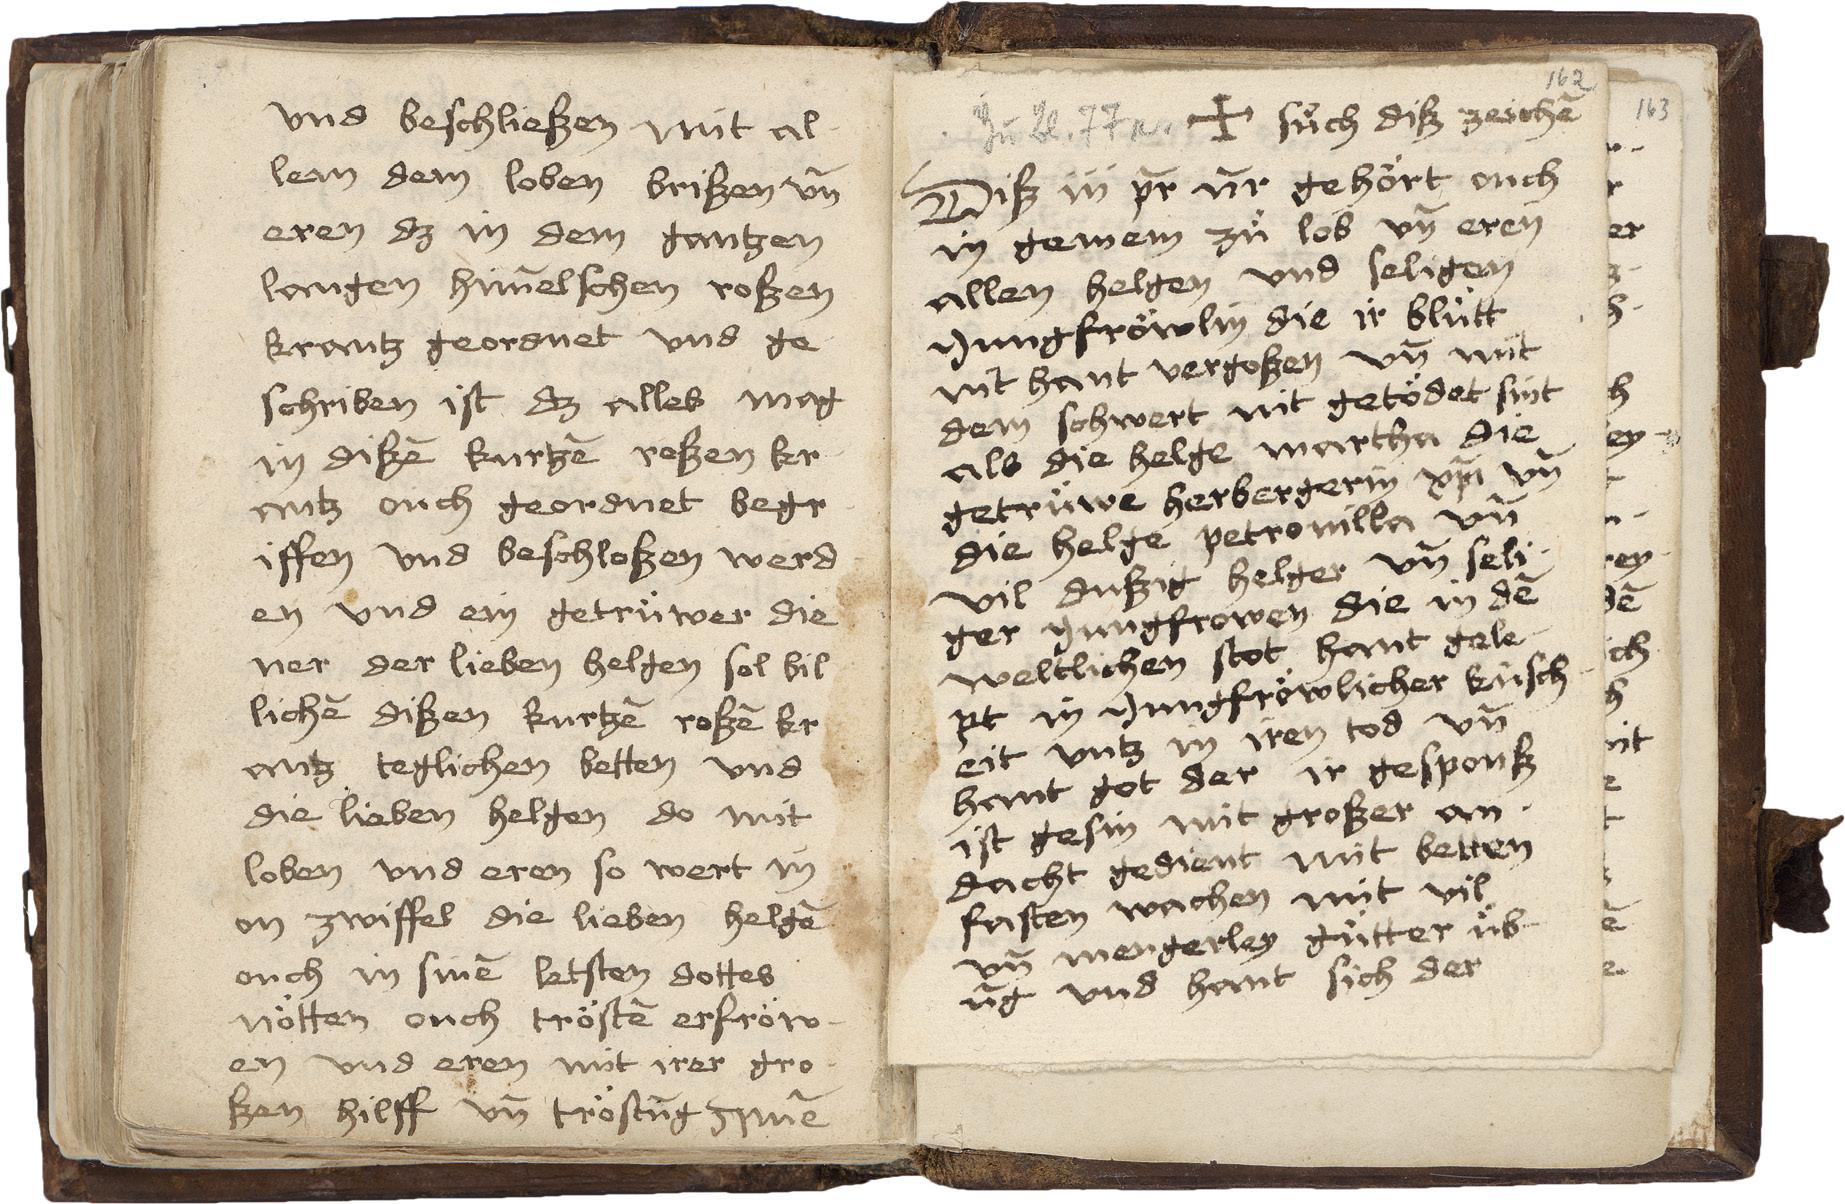 vnd beschließen mit al
lem dem loben brißen vn̄
eren dz in dem gantzen
langen him̄elschen roßen
krantz geordnet vnd ge
schriben ist dz alles mag
in dißē kurtzē roßen kr
antz ouch geordnet begr
iffen vnd beschloßen werd
en vnd ein getrüwer die
ner der lieben helgen sol bil
lichē dißen kurtzē roßē kr
antz teglichen betten vnd
die lieben helgen do mit
loben vnd eren so wert in
on zwiffel die lieben helgē
ouch in sinē letsten dottes
nötten ouch tröstē erfröw-
en vnd eren mit irer gro
ßen hilff vn̄ tröstūg
162
163
Zu Bl. 77r. + sůch diß zeichē
Diß iij pr̄ nr̄ gehört ouch
in gemein zů lob vn̄ eren
allen helgen vnd seligen
Jungfröwlin die ir blůtt
nit hant vergoßen vn̄ mit
dem schwert nit getödet sint
als die helge martha die
getrüwe herbergerin xp̄i vn̄
die helge petronilla vn̄
vil dußig helger vn̄ seli-
ger Jungfrowen die in dē
weltlichen stot hant gele-
pt in Jungfröwlicher küsch-
eit vntz in iren tod vn̄
hant got der ir gesponß
ist gesin mit großer an-
dacht gedient mit betten
fasten wachen mit vil
vn̄ mengerley gůtter üb-
ūg vnd hant sich der